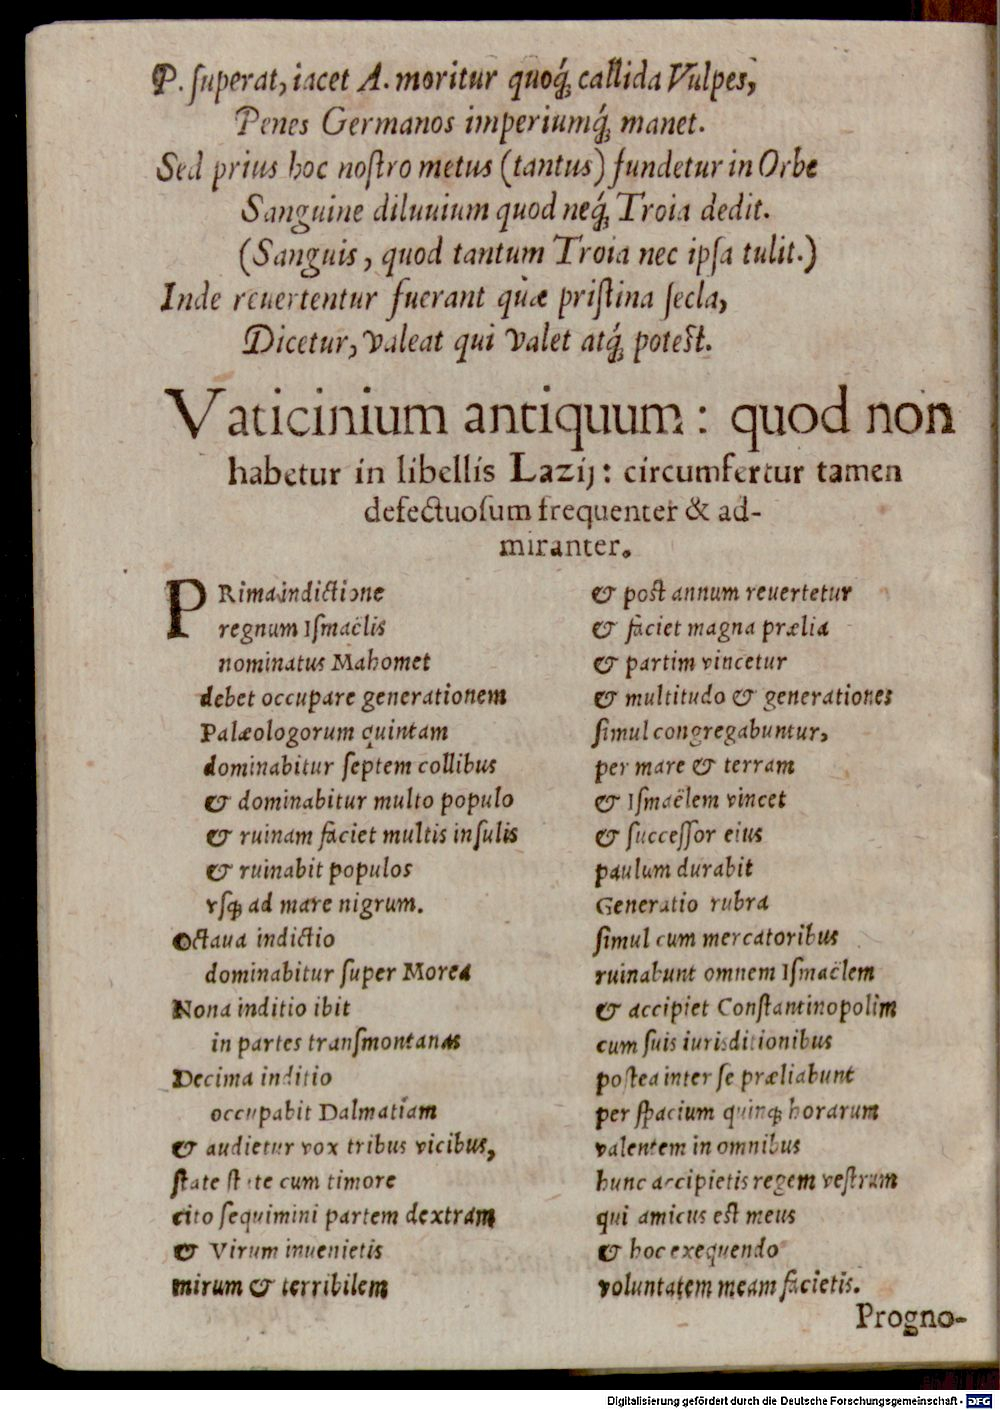 P. ſuperat, iacet A. moritur quoq́; callida Vulpes,
Penes Germanos imperiumq́; manet.
Sed prius hoc noſtro metus (tantus) fundetur in Orbe
Sanguine diluuium quod neq́; Troia dedit.
(Sanguis, quod tantum Troia nec ipſa tulit.)
Inde reuertentur fuerant quæ priſtina ſecla,
Dicetur, valeat qui valet atq́; poteſt.
Vaticinium antiquum: quod non
habetur in libellis Lazij: circumfertur tamen
defectuoſum frequenter & ad-
miranter.
PRima indictione
regnum Iſmaëlis
nominatus Mahomet
debet occupare generationem
Palæologorum quintam
dominabitur ſeptem collibus
& dominabitur multo populo
& ruinam faciet multis inſulis
& ruinabit populos
vſq; ad mare nigrum.
Octaua indictio
dominabitur ſuper Morea
Nona inditio ibit
in partes tranſmontanas
Decima inditio
occupabit Dalmatiam
& audietur vox tribus vicibus,
ſtate ſtate cum timore
cito ſequimini partem dextram
& Virum inuenietis
mirum & terribilem
& poſt annum reuertetur
& faciet magna prælia
& partim vincetur
& multitudo & generationes
ſimul congregabuntur,
per mare & terram
& Iſmaëlem vincet
& ſucceſſor eius
paulum durabit
Generatio rubra
ſimul cum mercatoribus
ruinabunt omnem Iſmaëlem
& accipiet Conſtantinopolim
cum ſuis iurisditionibus
poſtea inter ſe præliabunt
per ſpacium quinq; horarum
valentem in omnibus
hunc accipietis regem veſtrum
qui amicus eſt meus
& hoc exequendo
voluntatem meam facietis.
Progno-
Digitalisierung gefördert durch die Deutsche Forschungsgemeinschaft - DFG